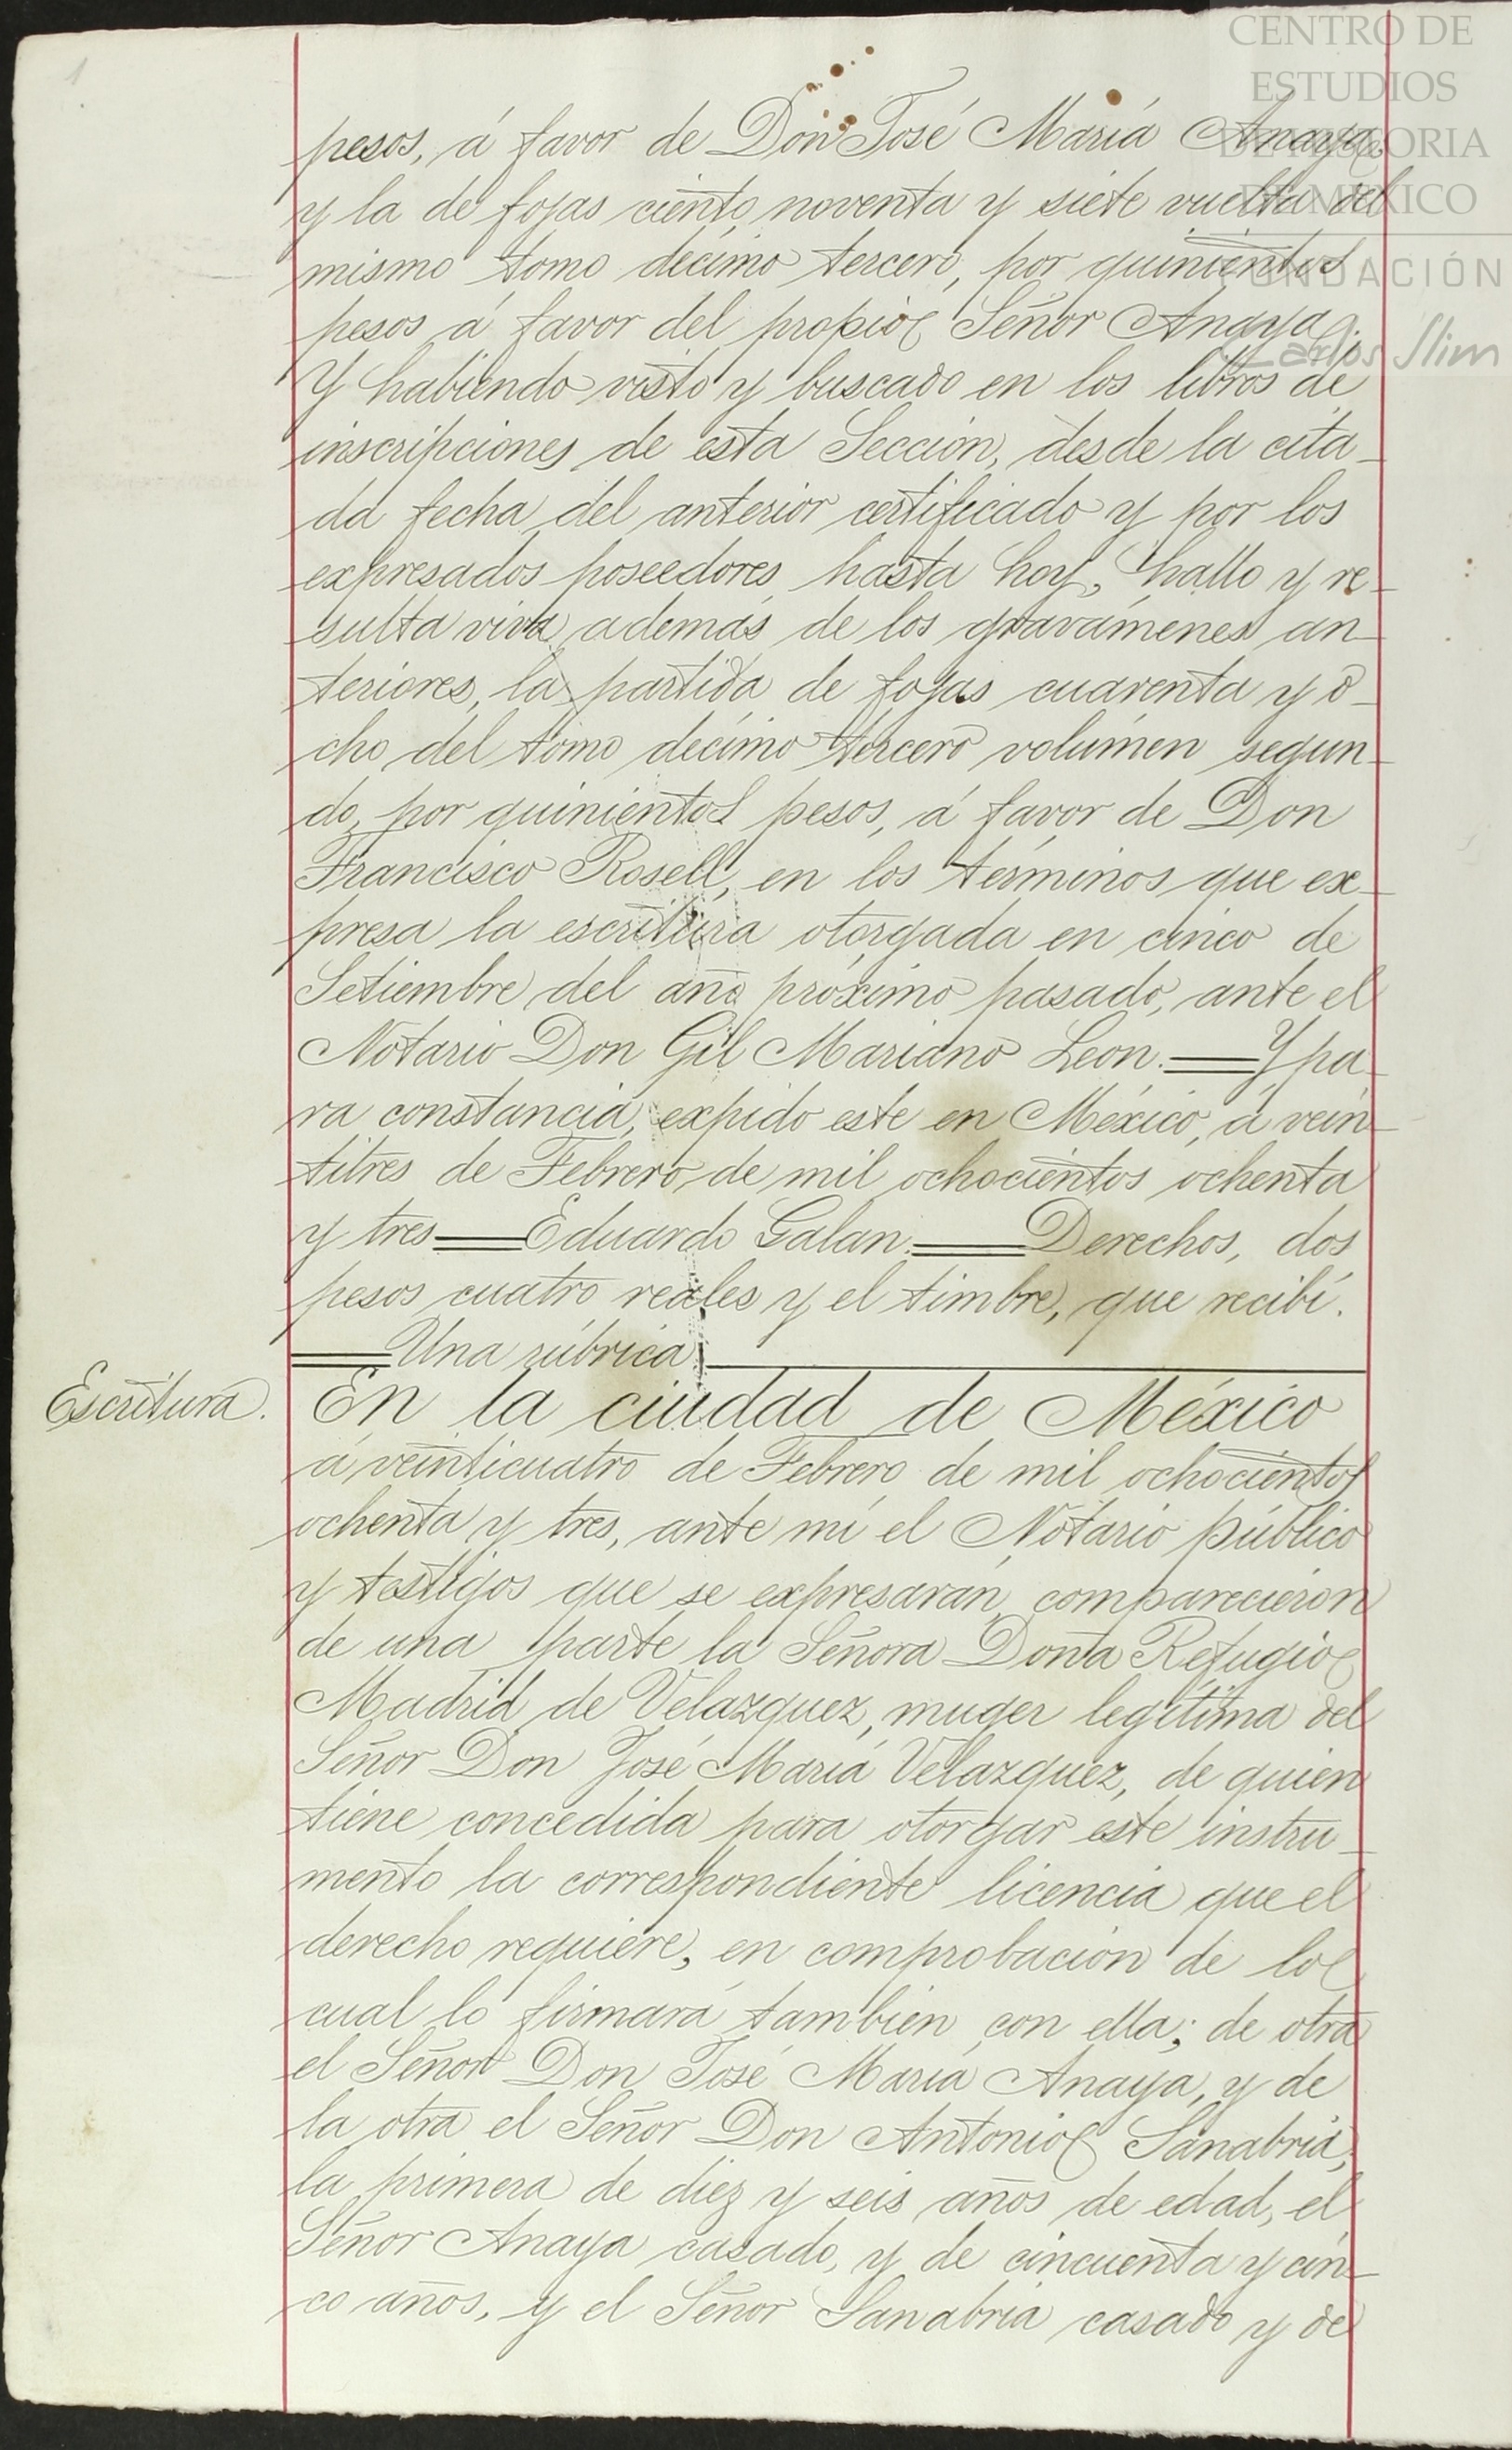 1
CENTRO DE
ESTUDIOS
DE HISTORIA
DE MEXICO
FUNDACIÓN
Carlos Slim
pesos, á favor de Don José María Anaya
y la de fojas ciento noventa y siete vuelta del
mismo tomo décimo tercero, por quinientos
pesos á favor del propio Señor Anaya.
Y habiendo visto y buscado en los libros de
inscripciones de esta Seccion, desde la cita_
da fecha del anterior certificado y por los
expresados poseedores hasta hoy, hallo y re_
sulta viva además de los gravámenes an_
teriores, la partida de fojas cuarenta y o_
cho del tomo décimo tercero volúmen segun_
do, por quinientos pesos, á favor de Don
Francisco Rosell, en los términos que ex_
presa la escritura otorgada en cinco de
Setiembre del año próximo pasado, ante el
Notario Don Gil Mariano Leon. = Y pa_
ra constancia, expido este en México, á vein_
titres de Febrero de mil ochocientos ochenta
y tres = Eduardo Galan. = Derechos, dos
pesos cuatro reales y el timbre, que recibí.
= Una rúbrica.
Escritura.
En la ciudad de México
á veinticuatro de Febrero de mil ochocientos
ochenta y tres, ante mí el Notario público
y testigos que se expresarán, comparecieron
de una parte la Señora Doña Refugio
Madrid de Velazquez, muger legítima del
Señor Don José María Velazquez, de quien
tiene concedida para otorgar este instru_
mento la correspondiente licencia que el
derecho requiere, en comprobacion de lo
cual lo firmará tambien con ella; de otra
el Señor Don José María Anaya, y de
la otra el Señor Don Antonio Sanabria,
la primera de diez y seis años de edad, el
Señor Anaya casado, y de cincuenta y cin_
co años, y el Señor Sanabria casado y de